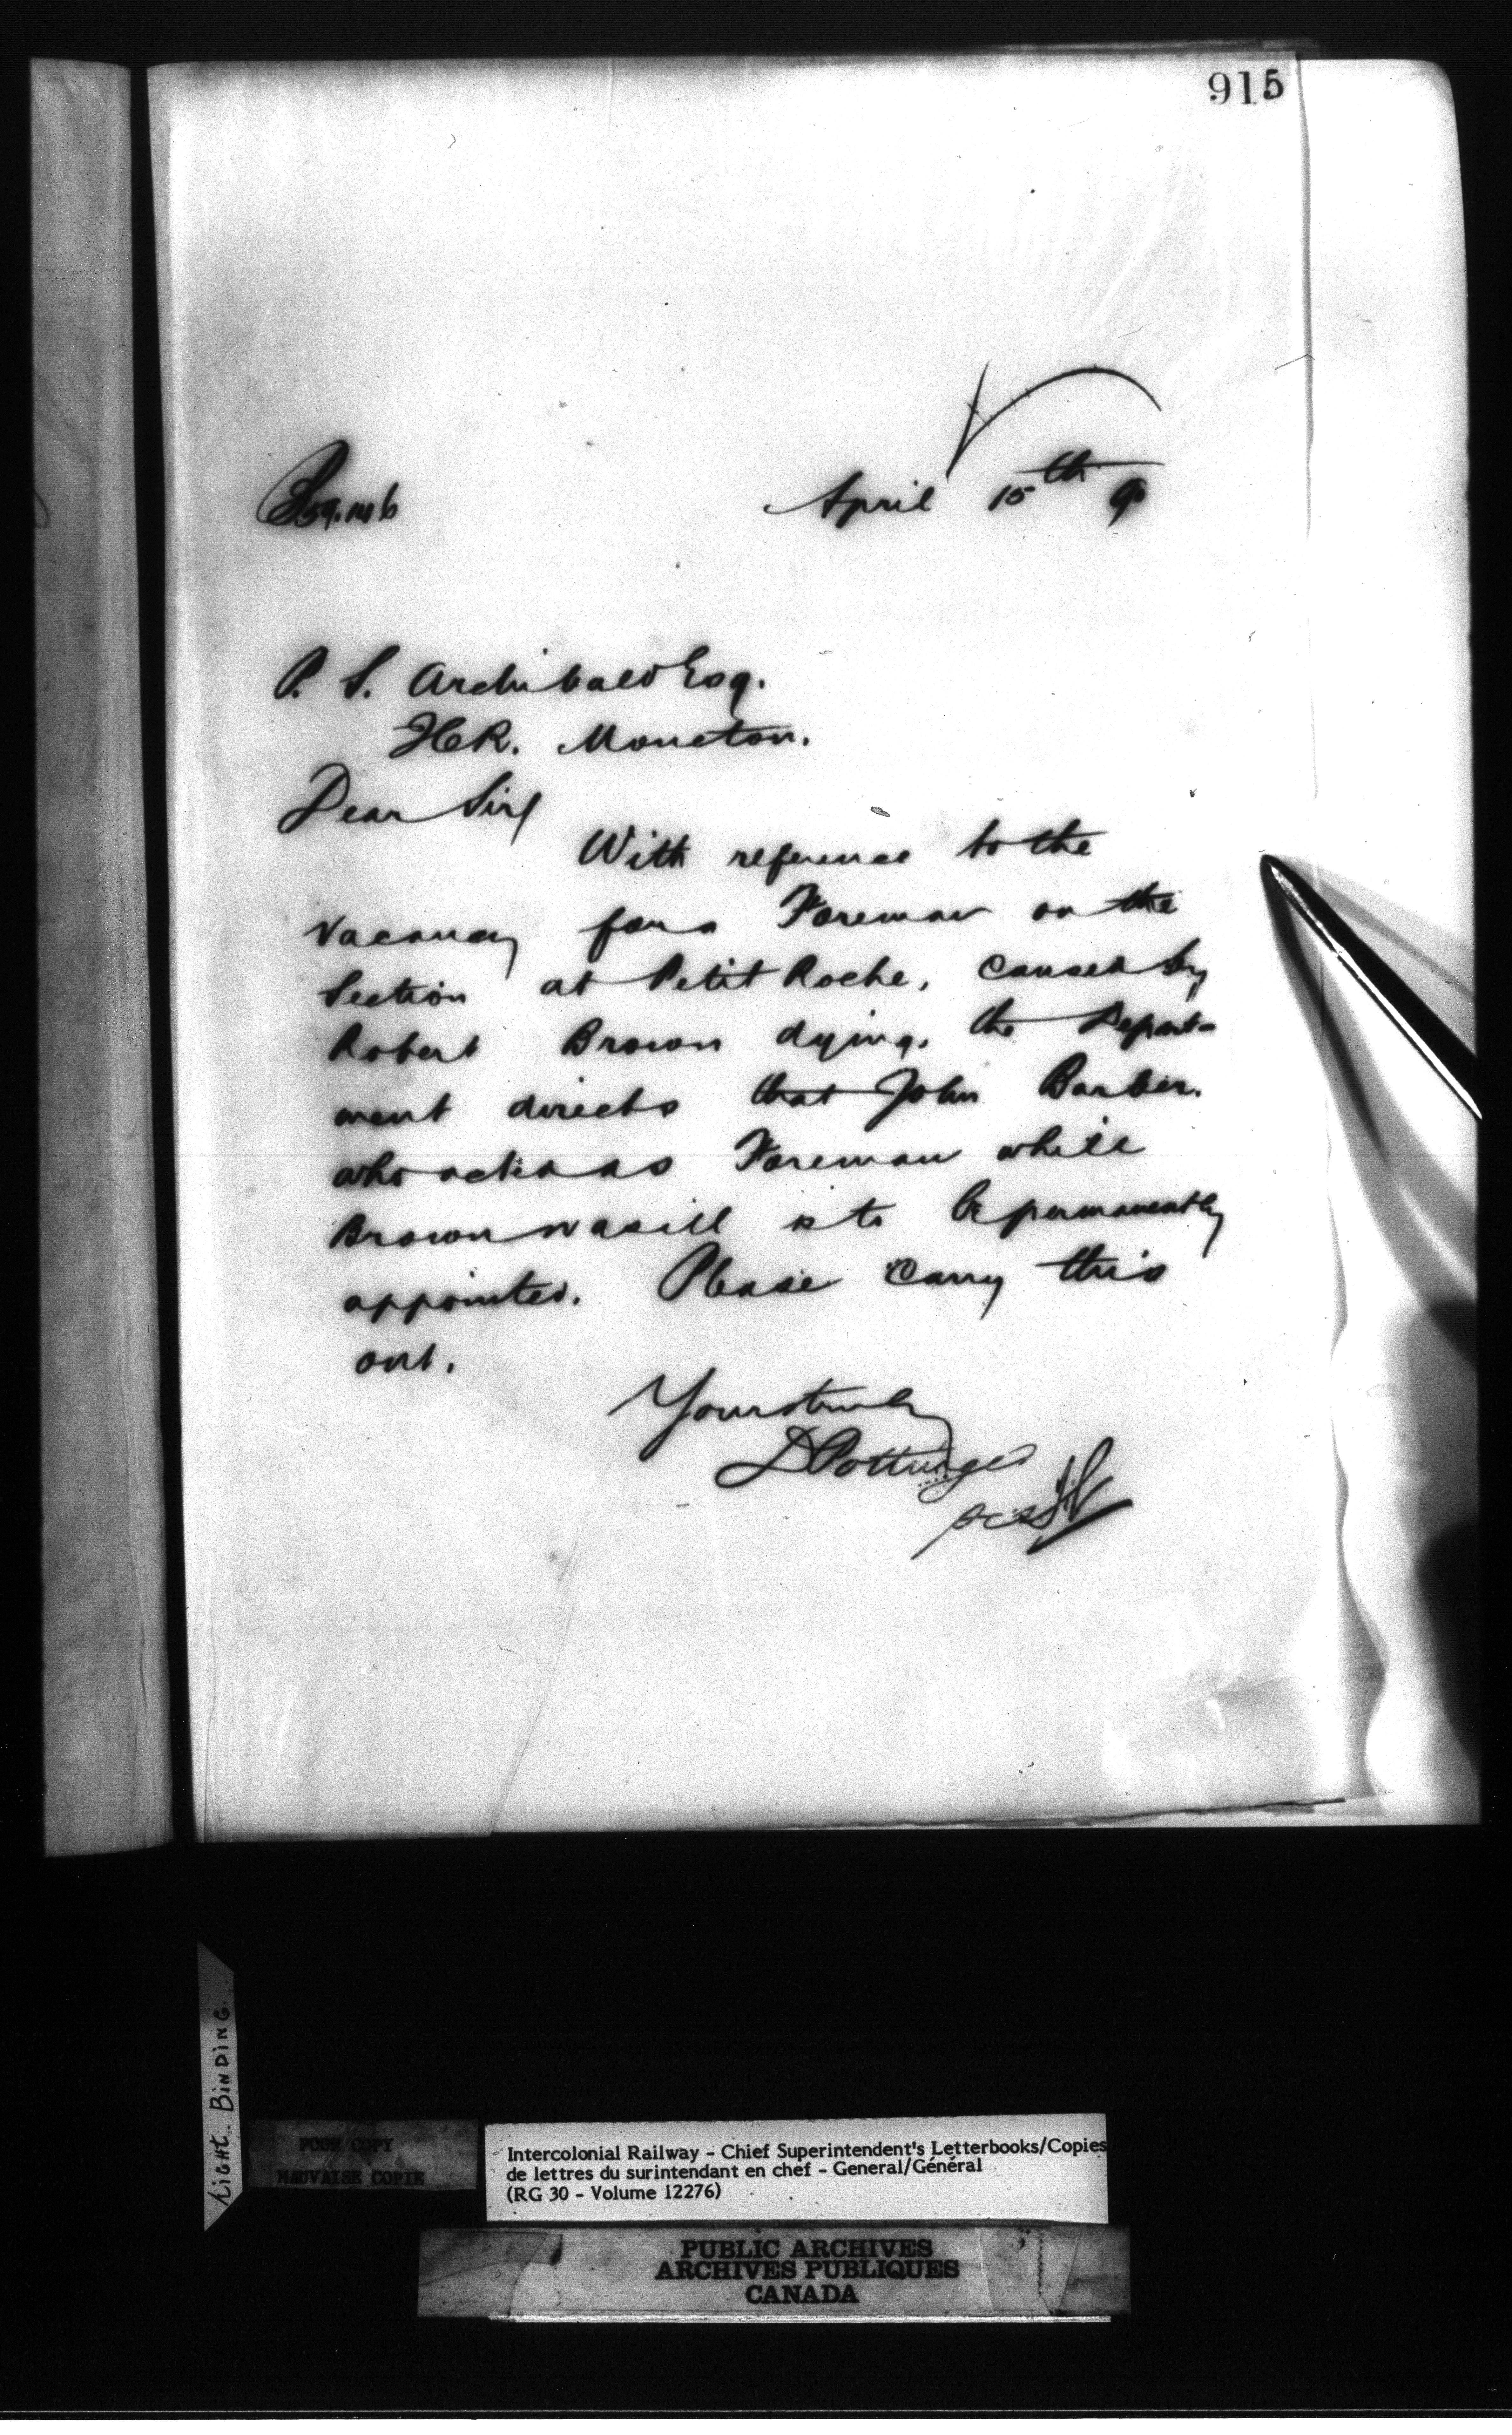 915
April 15th 90
P. S. Archibald Esq.
Moncton.
Dear Sir/
With reference to the
vacancy for a Foreman on the
Section at Petit Roche, caused by
Robert Brown dying, the Depart-
ment directs that John Barber,
who acted as Foreman while
Brown was ill is to be permanently
appointed. Please carry this
out.
Yours truly
D Pottinger
LIGHT BINDING.
POOR COPY
MAUVAISE COPIE
Intercolonial Railway - Chief Superintendent's Letterbooks/Copies
de lettres du surintendant en chef - General/Général
(RG 30 - Volume 12276)
PUBLIC ARCHIVES
ARCHIVES PUBLIQUES
CANADA